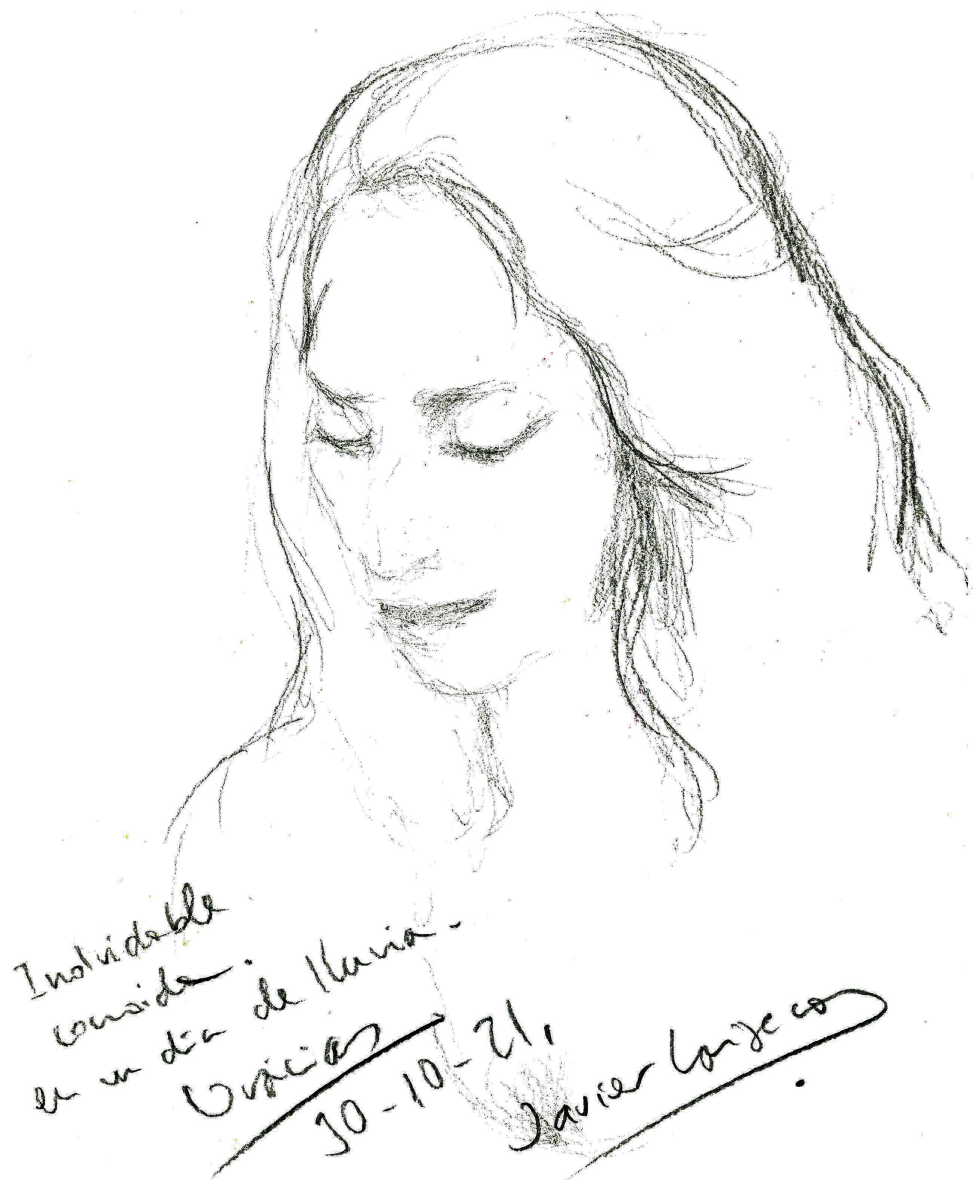 Inolvidable
comida.
en un día de lluvia.
Gracias
30-10-21.
Javier